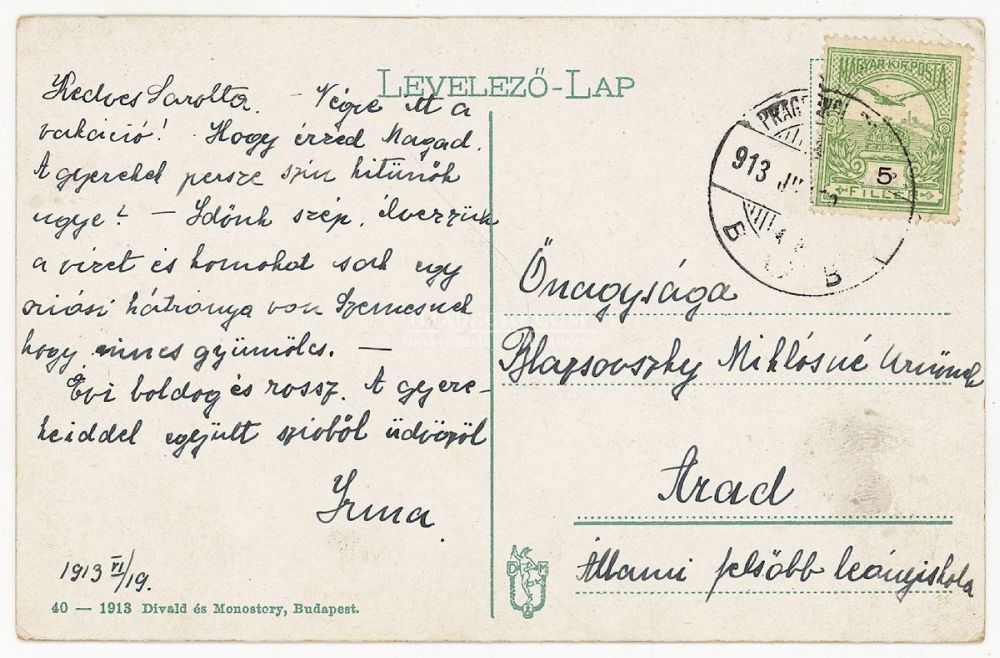 LEVELEZŐ-LAP
Kedves Sarolta. – Végre itt a
vakáció! Hogy érzed Magad.
A gyerekek persze szín kitünők
ugye? – Időnk szép, élvezzük
a vizet és homokot csak egy
óriási hátránya van Szemesnek
hogy nincs gyümölcs. –
Évi boldog és rossz. A gyere-
keiddel együtt szívből üdvözöl
Irma
1913 VI/19.
40 — 1913 Divald és Monostory, Budapest.
D M
MAGYAR KIR. POSTA
5
FILLÉR
PRÁG
913 JU
B
Őnagysága
Blazsovszky Miklósné Urnőnek
Arad
Állami felsőbb leányiskola